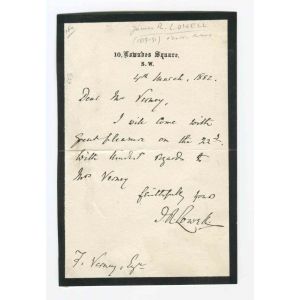 James R. LOWELL
10, Lowndes Square,
S. W.
4th March, 1882.
Dear Mr Verney,
I will come with
great pleasure on the 22d.
With kindest regards to
Mrs Verney
faithfully yours
J. R. Lowell
F. Verney, Esqre